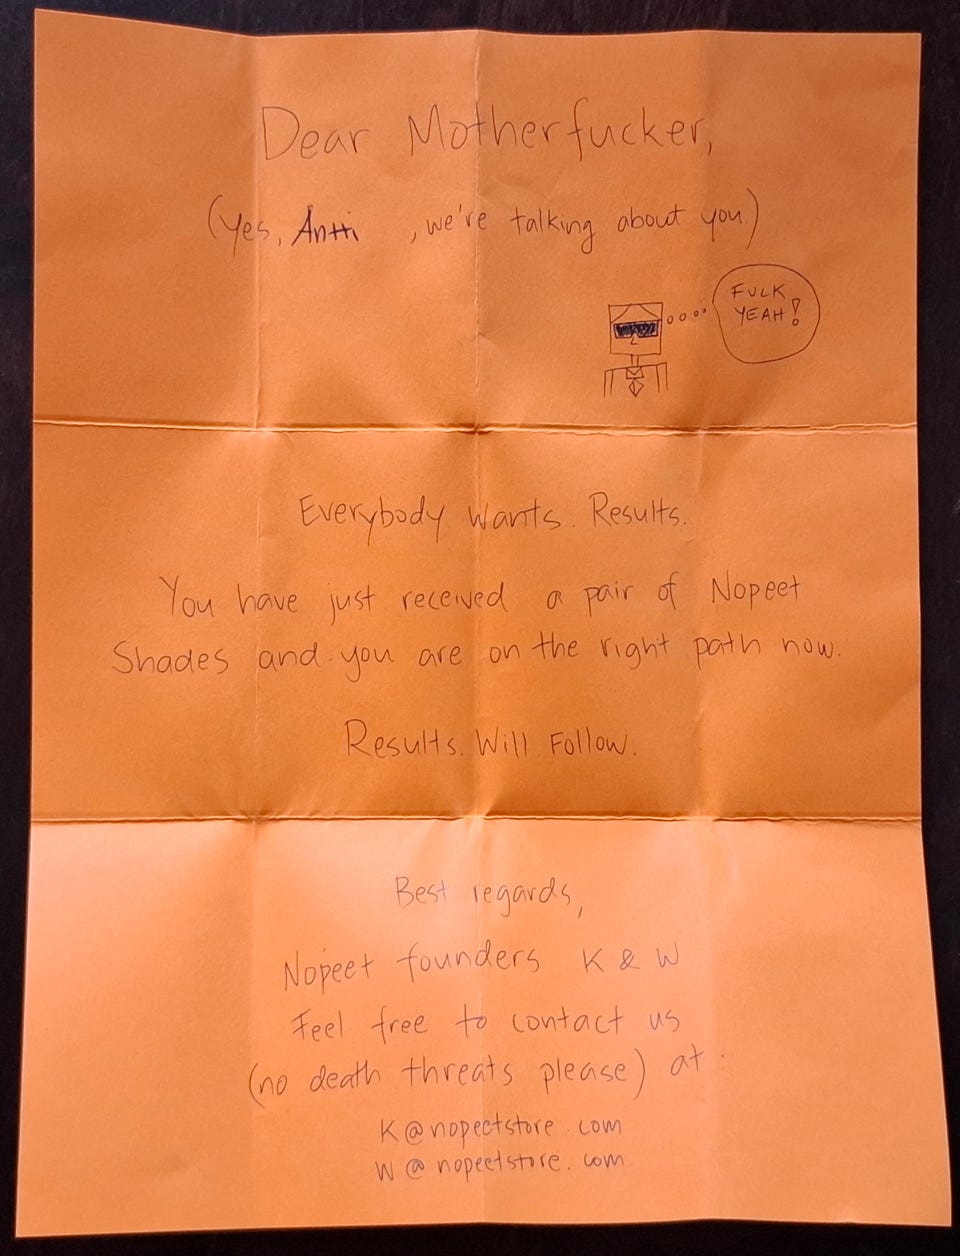 Dear Motherfucker,
(Yes, Antti , we're talking about you)
FUCK
YEAH!
Everybody Wants. Results.
You have just received a pair of Nopeet
Shades and you are on the right path now.
Results. Will. Follow.
Best regards,
Nopeet founders K & W
Feel free to contact us
(no death threats please) at:
K@nopeetstore.com
W@nopeetstore.com